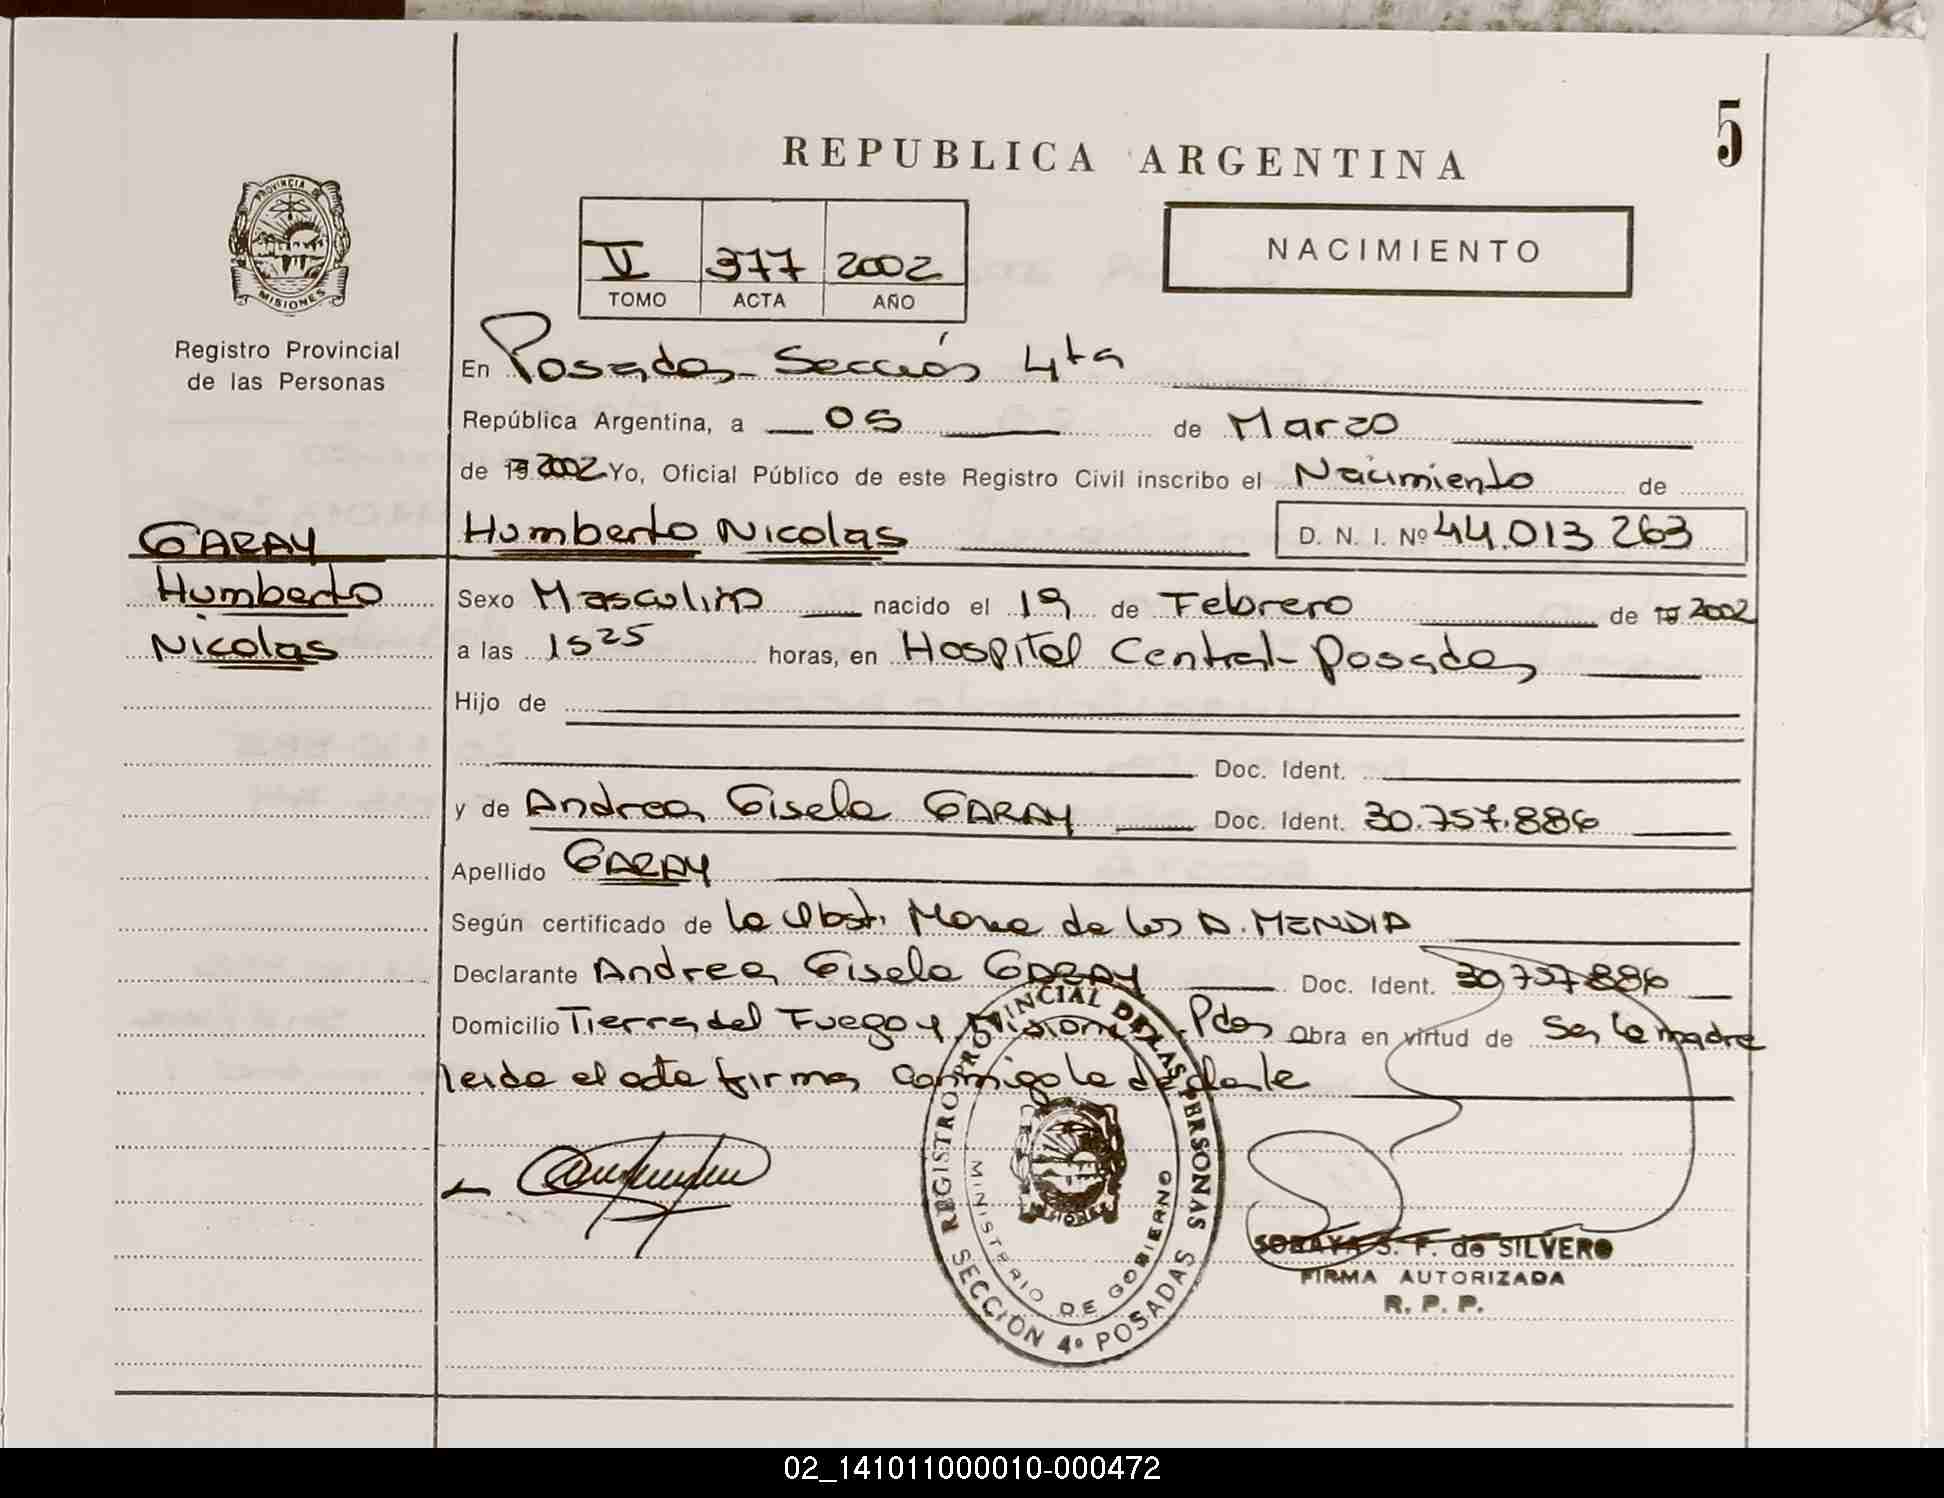 5
REPUBLICA ARGENTINA
PROVINCIA DE
MISIONES
Registro Provincial
de las Personas
V 377 2002
TOMO ACTA AÑO
NACIMIENTO
En Posadas - Sección 4ta
República Argentina, a 05 de Marzo
de 19 2002 Yo, Oficial Público de este Registro Civil inscribo el Nacimiento de
GARAY
Humberto
Nicolas
Humberto Nicolas D. N. I. Nº 44.013 263
Sexo Masculino nacido el 19 de Febrero de 19 2002
a las 15 25 horas, en Hospital Central - Posadas
Hijo de
Doc. Ident.
y de Andrea Gisela GARAY Doc. Ident. 30.757.886
Apellido GARAY
Según certificado de la Obst. Maria de los A. MENDIA
Declarante Andrea Gisela GARAY Doc. Ident. 30.757.886
Domicilio Tierra del Fuego y Misiones - Pdas Obra en virtud de Ser la madre
leida el acta firma conmigo la declarante
REGISTRO PROVINCIAL DE LAS PERSONAS
MINISTERIO DE GOBIERNO
MISIONES
SECCIÓN 4º POSADAS
SORAYA S. F. de SILVERO
FIRMA AUTORIZADA
R. P. P.
02_141011000010-000472